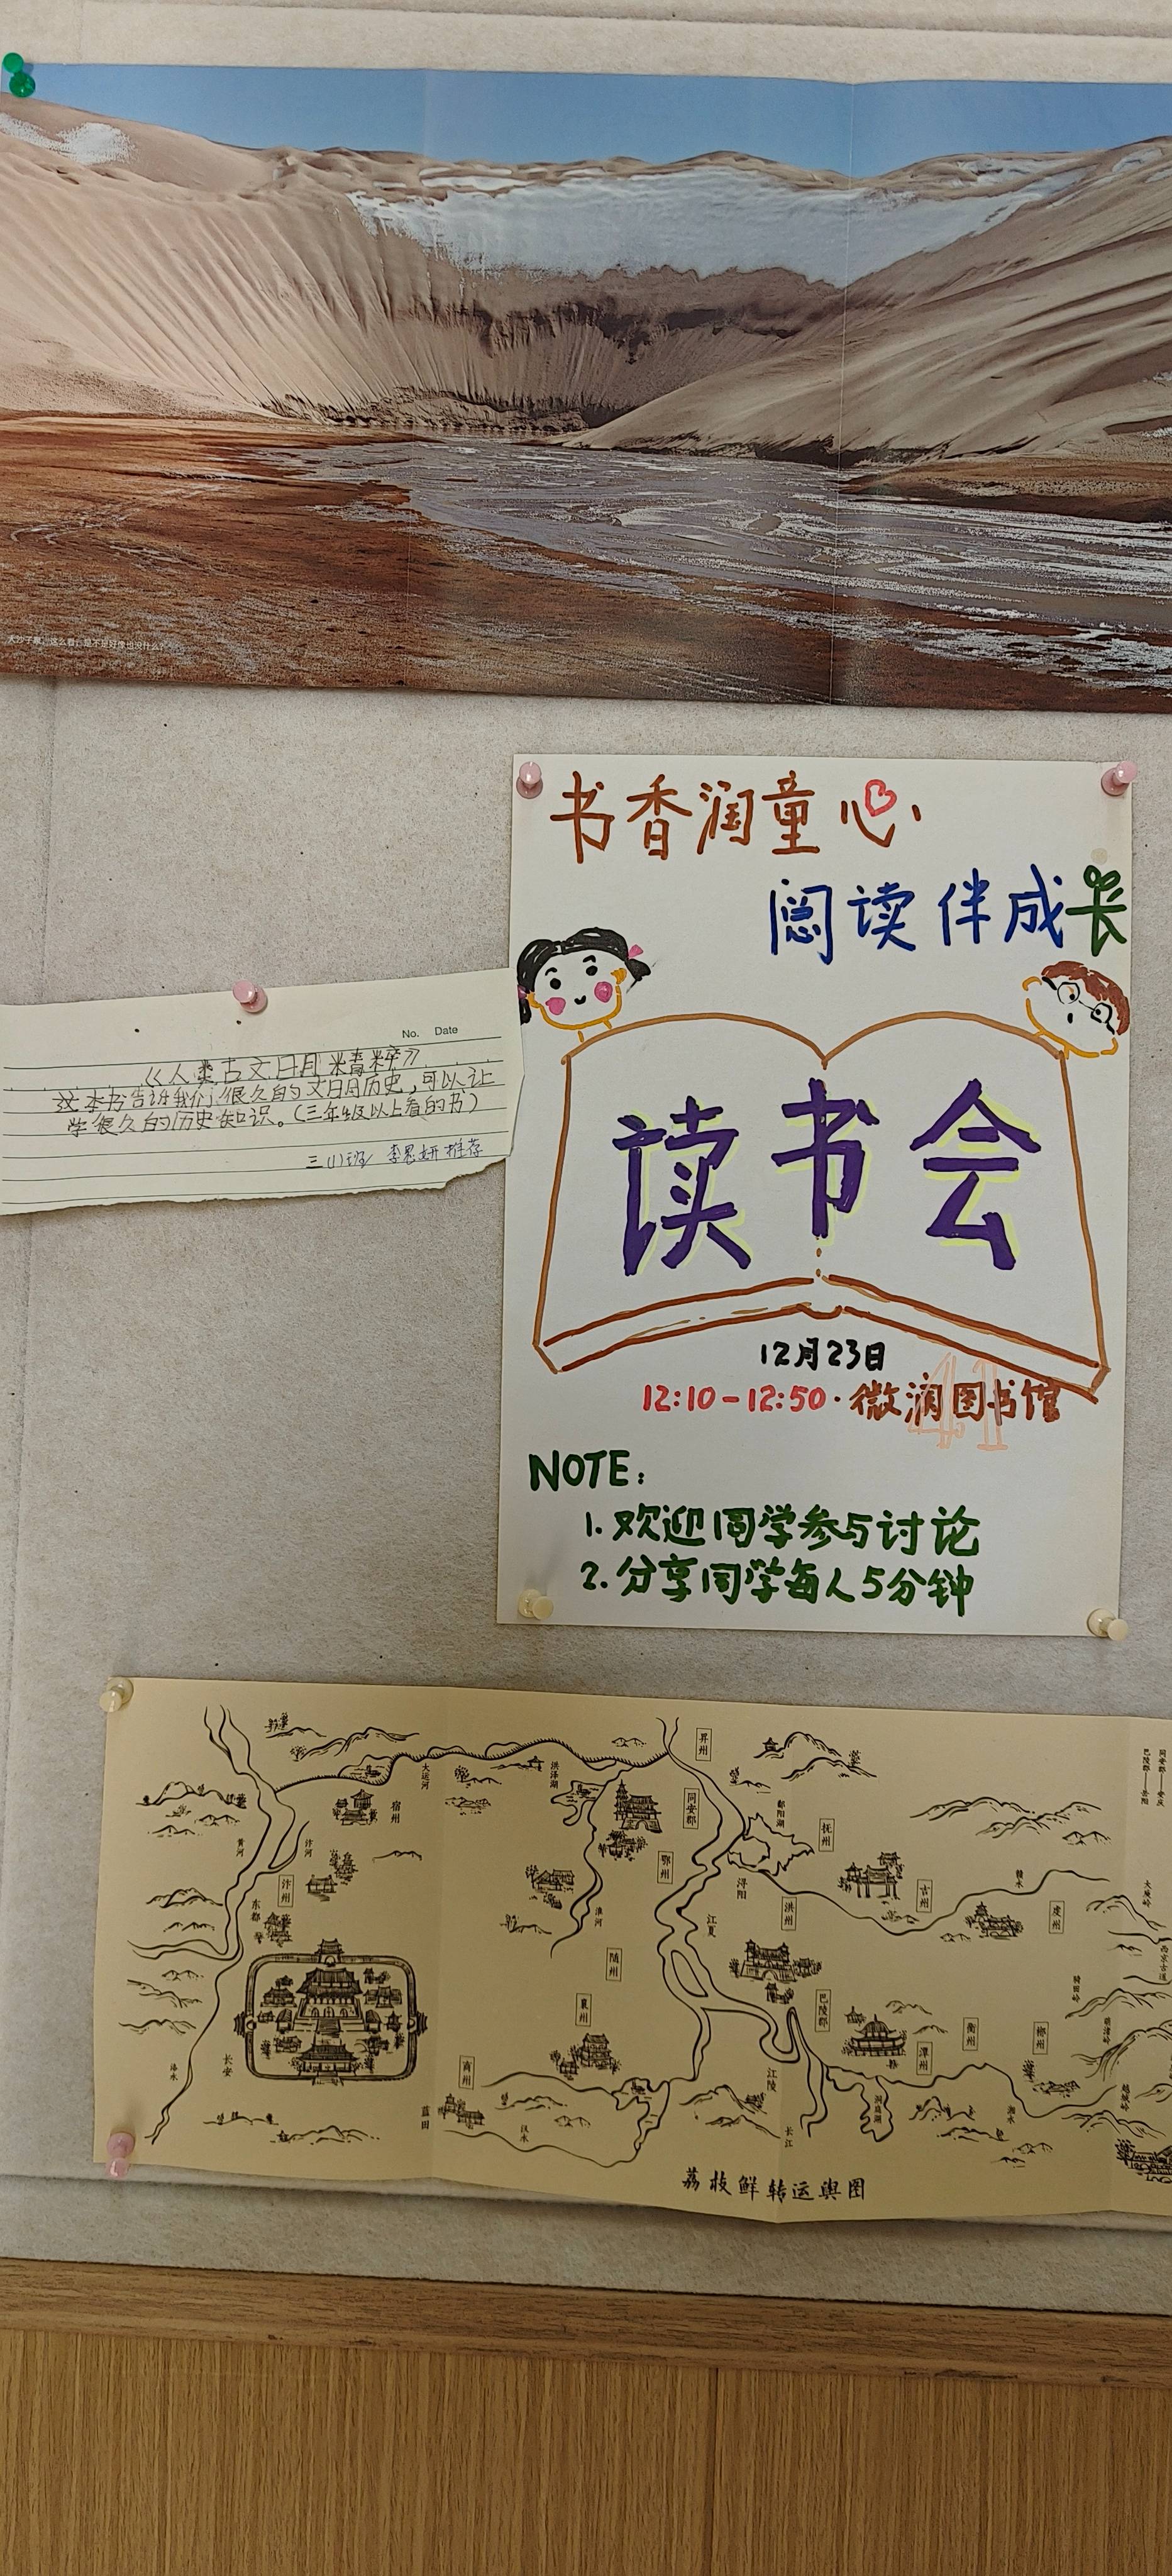 这么看，是不是好像也没什么？
书香润童心
阅读伴成长
No. Date
《人类古文明精粹》
这本书告诉我们很久的文明历史，可以让
学很久的历史知识。（三年级以上看的书）
三(1)班 李思妍推荐
读书会
12月23日
12:10-12:50·微润图书馆
NOTE:
1.欢迎同学参与讨论
2.分享同学每人5分钟
昇州
大运河
洪泽湖
宿州
同安郡
鄱阳湖
抚州
黄河
汴河
鄂州
汴州
浔阳
吉州
赣水
虔州
大庾岭
东都
淮河
江夏
洪州
随州
西京古道
骑田岭
襄州
巴陵郡
衡州
郴州
萌渚岭
潭州
洛水
长安
商州
江陵
洞庭湖
湘水
越城岭
蓝田
汉水
长江
荔枝鲜转运舆图
同安郡——安庆
巴陵郡——岳阳